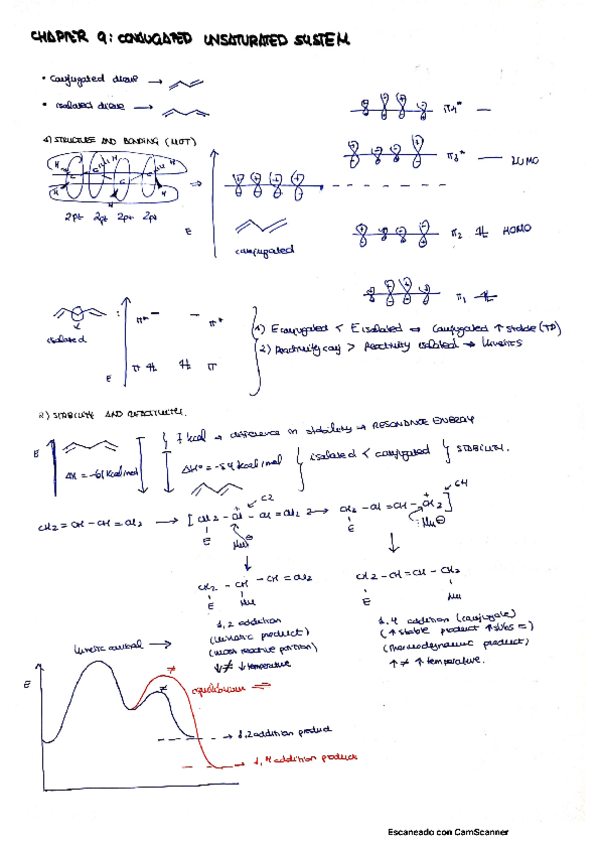 CHAPTER 9: CONJUGATED UNSATURATED SYSTEM
• Conjugated diene →
• isolated diene →
π4*
1) STRUCTURE AND BONDING (MOT)
π3* LUMO
2pz 2pz 2pz 2pz
E
conjugated
π2 HOMO
π1
isolated
π* π*
π π
E
1) E conjugated < E isolated ⇒ Conjugated ↑ stable (TD)
2) Reactivity conj > reactivity isolated → kinetics
2) STABILITY AND REACTIVITY.
E
7 kcal → difference in stability → RESONANCE ENERGY
ΔH = -61 kcal/mol
ΔH° = -54 kcal/mol
isolated < conjugated } STABILITY.
C2
C4
CH2 = CH - CH = CH2 → [ CH2 - CH - CH = CH2 ↔ CH2 - CH = CH - CH2 ]
+ +
E Nu⊖ E :Nu⊖
CH2 - CH - CH = CH2
CH2 - CH = CH - CH2
E Nu
E Nu
1,2 addition
(kinetic product)
(most reactive position)
↓≠ ↓temperature
1,4 addition (conjugate)
(↑ stable product ↑subs =)
(thermodynamic product)
↑≠ ↑temperature.
kinetic control →
E
≠
≠
equilibrium ⇌
→ 1,2 addition product
→ 1,4 addition product
Escaneado con CamScanner